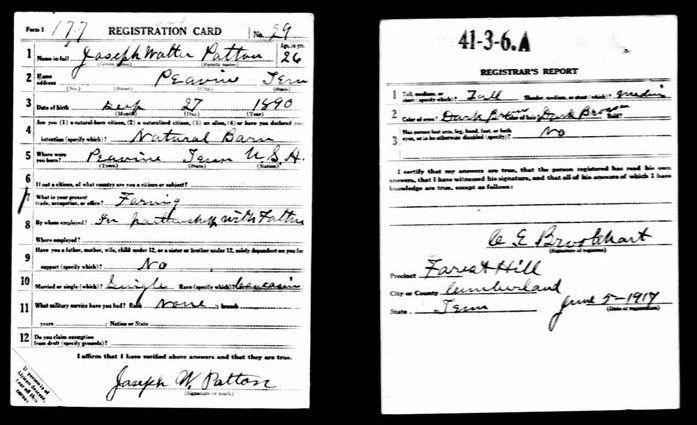 Form 1 177 REGISTRATION CARD No. 29
1 Name in full Joseph Walter Patton Age, in yrs. 26
(Given name) (Family name)
2 Home address Peavine Tenn
(No.) (Street) (City) (State)
3 Date of birth Sep 27 1890
(Month) (Day) (Year)
4 Are you (1) a natural-born citizen, (2) a naturalized citizen, (3) an alien, (4) or have you declared your
intention (specify which)? Natural Born
5 Where were you born? Peavine Tenn U.S.A.
(Town) (State) (Nation)
6 If not a citizen, of what country are you a citizen or subject?
7 What is your present trade, occupation, or office? Farming
8 By whom employed? In partnership with Father
Where employed?
9 Have you a father, mother, wife, child under 12, or a sister or brother under 12, solely dependent on you for
support (specify which)? No
10 Married or single (which)? Single Race (specify which)? Caucasian
11 What military service have you had? Rank None ; branch
years ; Nation or State
12 Do you claim exemption from draft (specify grounds)?
I affirm that I have verified above answers and that they are true.
Joseph W. Patton
(Signature or mark)
If person is of African descent, tear off this corner
41-3-6.A
REGISTRAR'S REPORT
1 Tall, medium, or short (specify which)? Tall Slender, medium, or stout (which)? medium
2 Color of eyes? Dark brown Color of hair? Dark Brown Bald?
3 Has person lost arm, leg, hand, foot, or both eyes, or is he otherwise disabled (specify)? No
I certify that my answers are true, that the person registered has read his own
answers, that I have witnessed his signature, and that all of his answers of which I have
knowledge are true, except as follows:
C E Brookhart
(Signature of registrar)
Precinct Forest Hill
City or County Cumberland
State Tenn June 5-1917
(Date of registration)